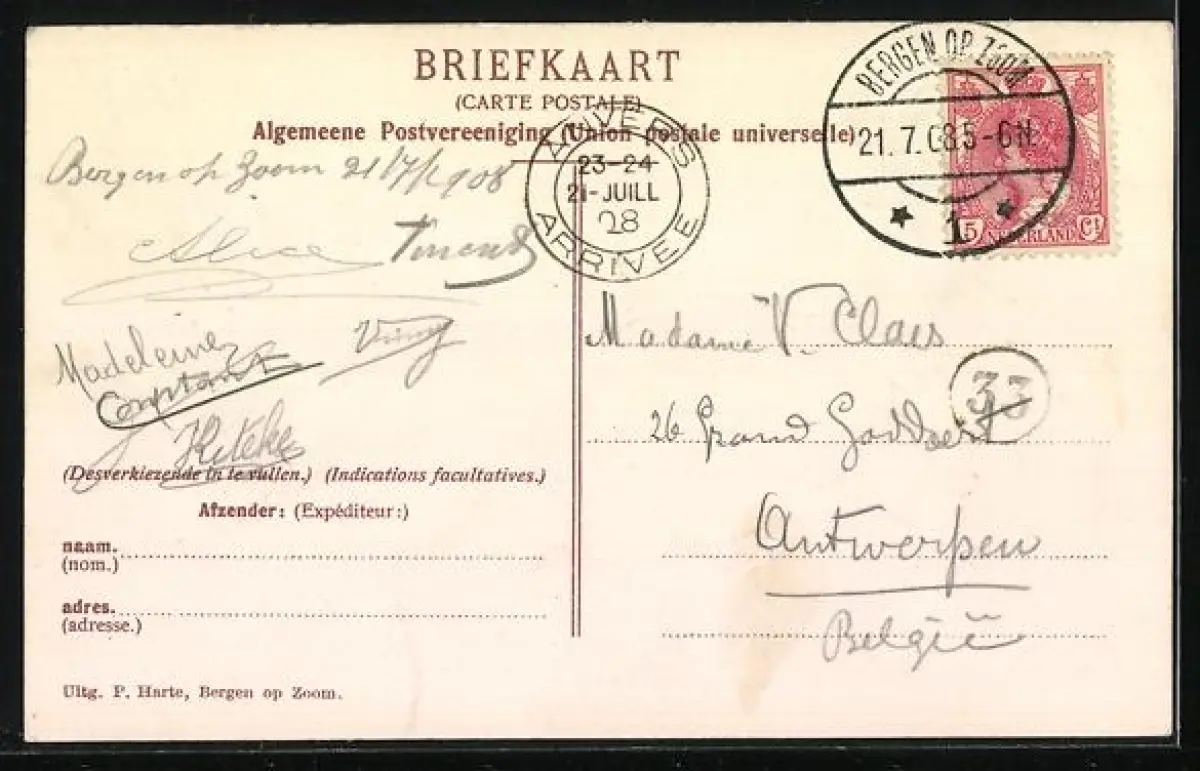 BRIEFKAART
(CARTE POSTALE)
Algemeene Postvereeniging (Union postale universelle)
BERGEN OP ZOOM
21.7.08 5-6N.
1
5 NEDERLAND Ct
ANVERS
23-24
21-JUILL
ARRIVEE
Bergen op Zoom 21/7/1908
Alice
Madeleine
Constant
Madame V. Claes
33
26 Grand Goddaert
Antwerpen
België
(Desverkiezende in te vullen.) (Indications facultatives.)
Afzender: (Expéditeur:)
naam.
(nom.)
adres.
(adresse.)
Uitg. P. Harte, Bergen op Zoom.